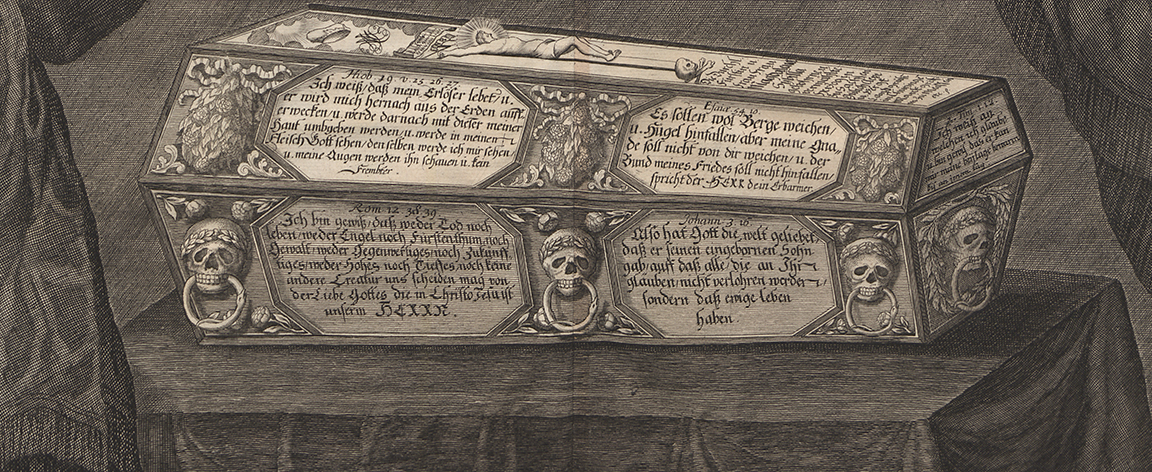 Hiob. 19. v. 25. 26. 27.
Ich weiß/ daß mein Erlöser lebet/ u.
er wird mich hernach aus der Erden auff
erwecken/ u. werde darnach mit dieser meiner
Haut umbgeben werden/ u. werde in meinem
Fleisch Gott sehen/ denselben werde ich mir sehen
u. meine Augen werden ihn schauen u. kein
Frembter.
Esaiæ 54. 10.
Es sollen wol Berge weichen/
u. Hügel hinfallen/ aber meine Gna,
de soll nicht von dir weichen/ u. der
Bund meines Friedes soll nicht hinfallen/
spricht der HERR dein Erbarmer.
Ich weiß an
welchen ich glaube
u. bin gewiß daß er kan
mir meine beylage bewaren
biß an jenen tag
Rom 12. 38. 39.
Ich bin gewiß/ daß weder Tod noch
leben/ weder Engel noch Fürstenthum/ noch
Gewalt/ weder Gegenwertiges/ noch Zukunff,
tiges/ weder Hohes noch Tieffes/ noch keine
andere Creatur uns scheiden mag von
der Liebe Gottes die in Christo Jesu ist
unserm HERRN.
Johann 3. 16.
Also hat Gott die welt geliebet/
daß er seinen eingebornen Sohn
gab/ auff daß alle/ die an Ihn
glauben/ nicht verlohren werden/
sondern daß ewige leben
haben.